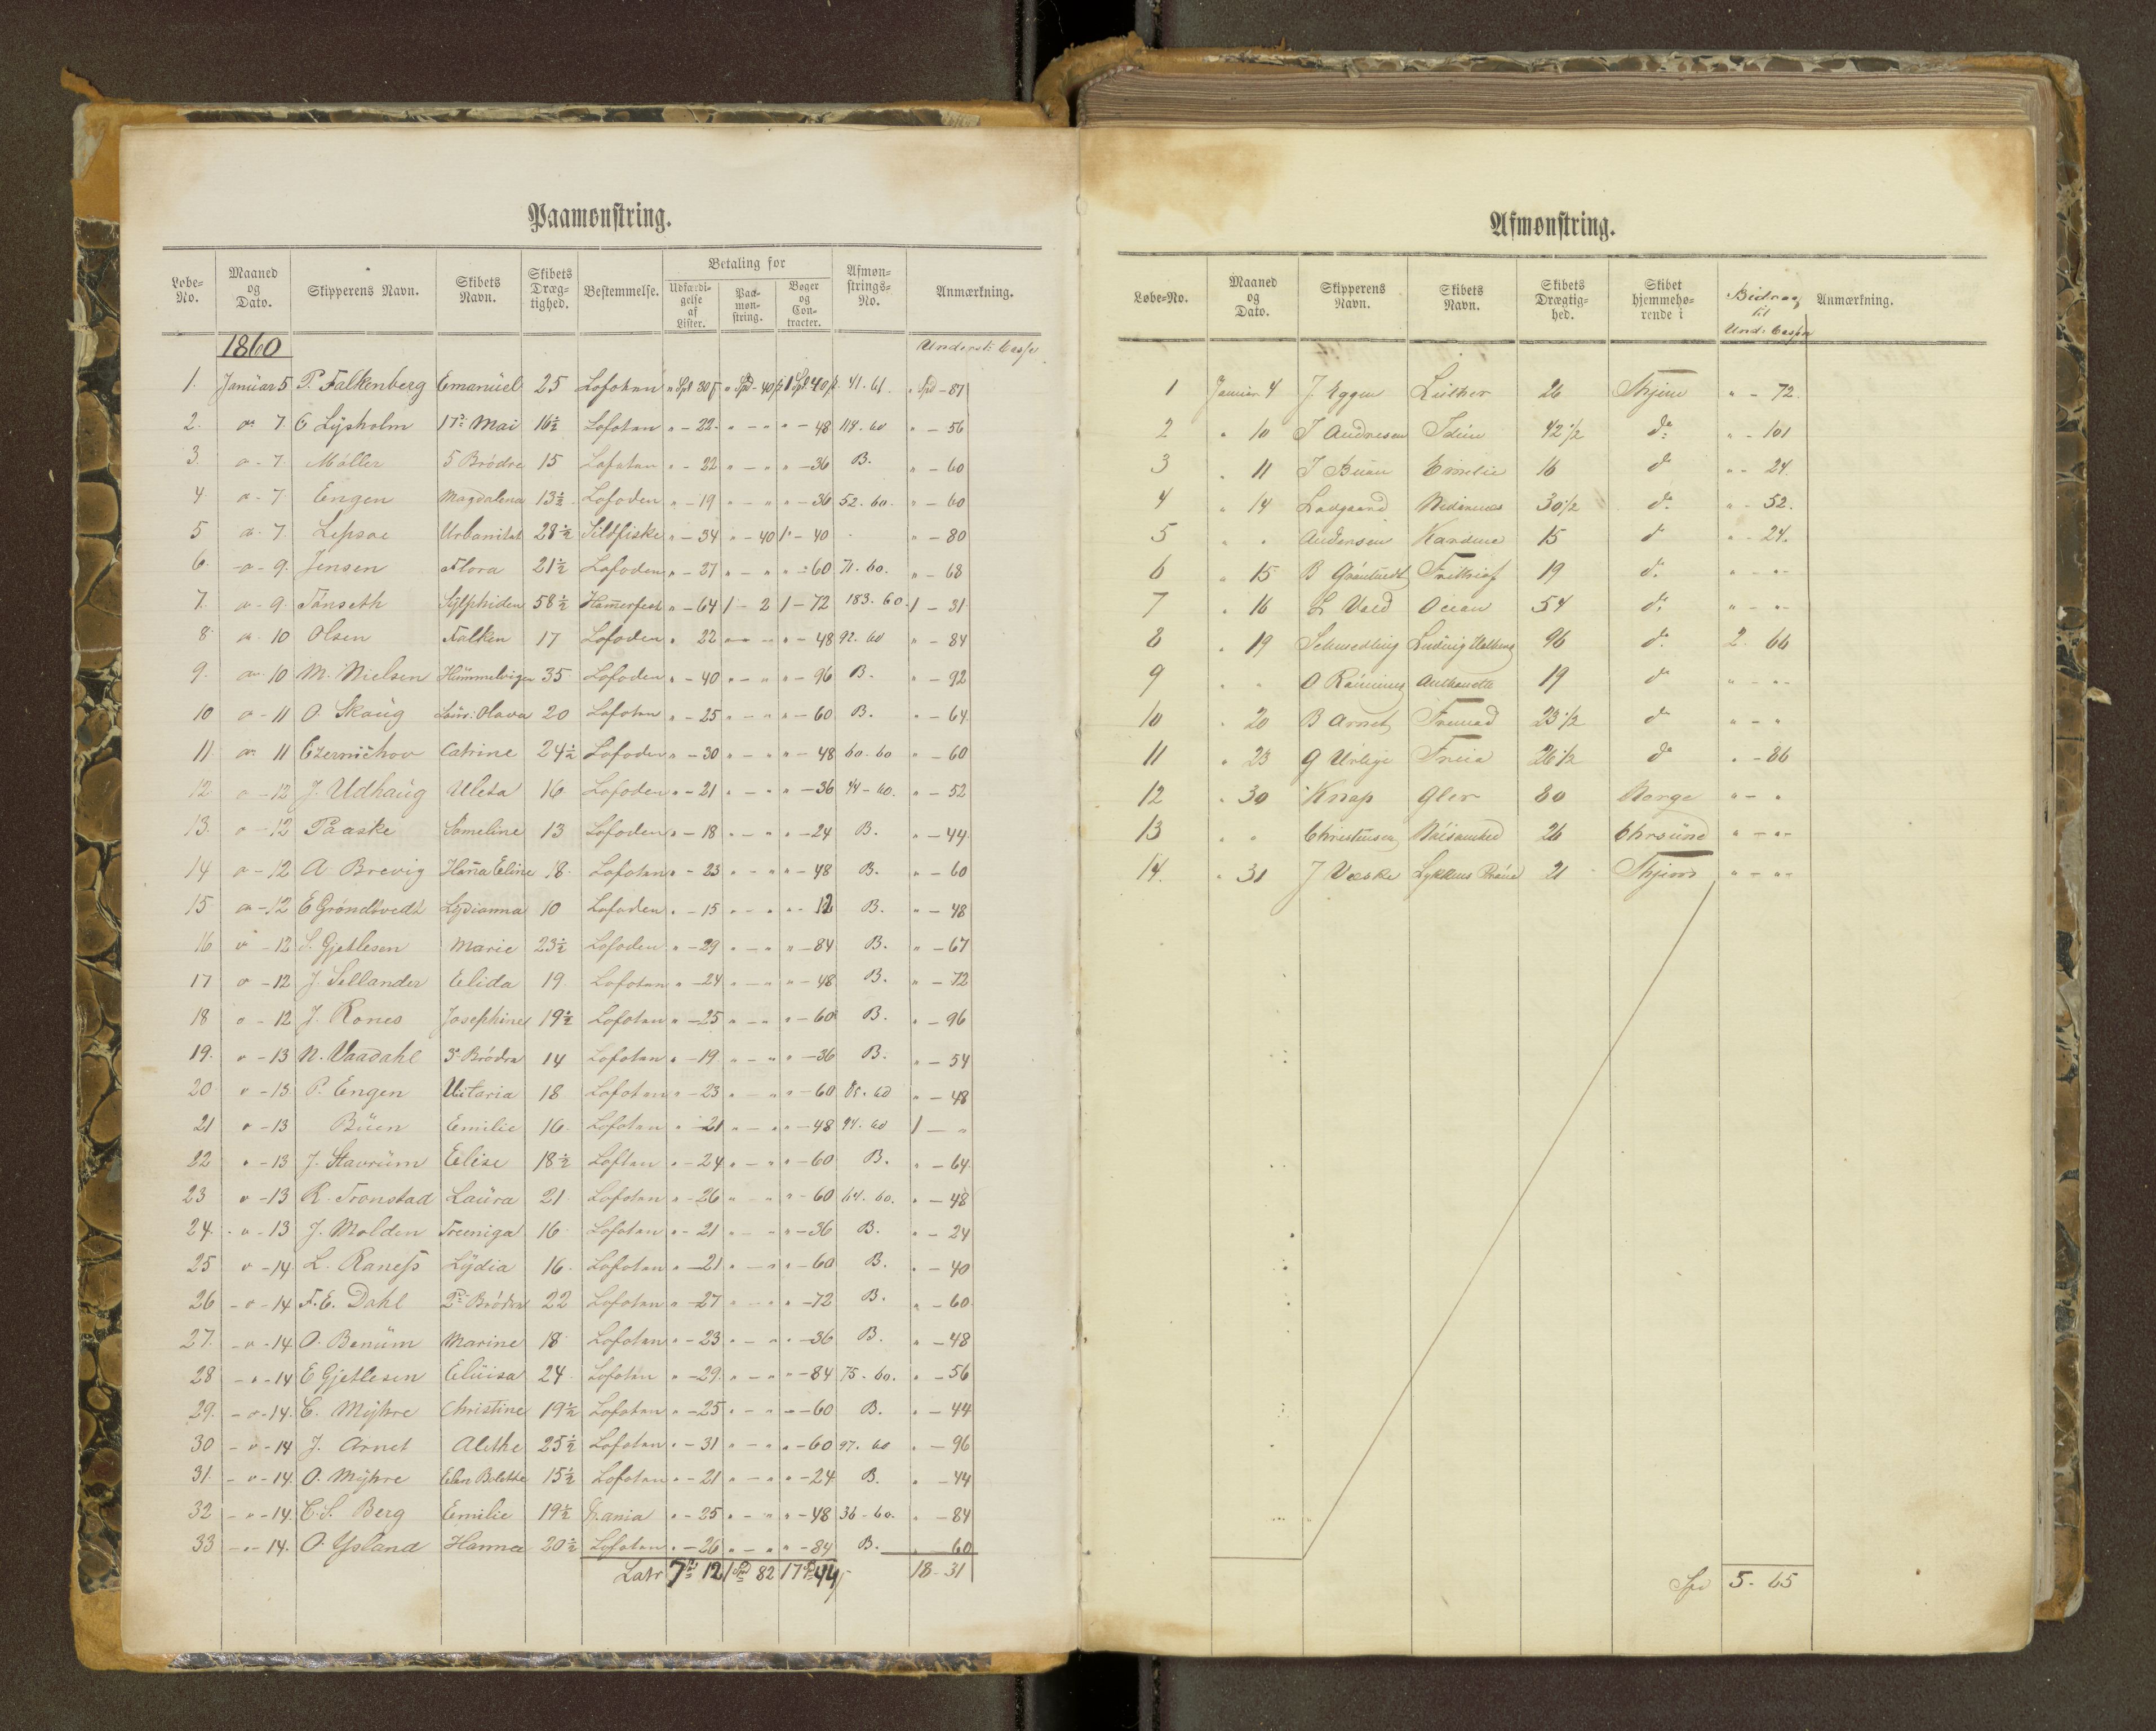 Paamønstring.
Løbe-No. Maaned og Dato. Skipperens Navn. Skibets Navn. Skibets Dræg-tighed. Bestemmelse. Betaling for Udfærdi-gelse af Lister. Paa-møn-string. Bøger og Con-tracter. Afmøn-strings-No. Anmærkning.
1860 Underst: Casse
1. Januar 5 P. Falkenberg Emanuel 25 Lofoten " Spd 30 " Spd - 40 1 Spd 40 41. 61. " Spd - 87
2. " 7. C Lysholm 17de Mai 16½ Lofoten " - 22 " - " " - 48 118. 60 " - 56
3. " - 7. Møller 5 Brødre 15 Lofoten " - 22 " - " " - 36 B. " - 60
4 " - 7 Engen Magdalena 13½ Lofoden " - 19 " - " " - 36 52. 60. " - 60
5 " - 7. Lepsøe Urbanitet 28½ Sildfiske " - 34 " - 40 1 " - 40 - " - 80
6. - " - 9. Jensen Flora 21½ Lofoden " - 27 " - " " - 60 71. 60. " - 68
7. " - 9. Tanseth Sylphiden 58½ Hamerfest " - 64 1 - 2 1 - 72 183. 60. 1 - 31
8. " 10 Olsen Falken 17 Lofoden " 22 " - " " - 48 92. 60 " - 84
9. " 10 M. Nielsen Himmelvigen 35 Lofoden " - 40 " - " " - 96 B. " - 92
10 " - 11 O. Skaug Laur: Olava 20 Lofoten " - 25 " - " " - 60 B. " - 64
11. " 11 Czernichov Catrine 24½ Lofoden " - 30 " - " " - 48 60. 60 " - 60
12 " - 12 J. Udhaug Uleta 16 Lofoden " - 21 " - " " - 36 44 - 60. " - 52
13. " - 12 Paaske Sameline 13 Lofoden " - 18 " - " " - 24 B. " - 44.
14 " - 12 A Brevig Hana Eline 18. Lofoten " - 23 " - " " - 48 B. " - 60
15 " - 12 E Grøndtvedt Lydianna 10 Lofoden " - 15 " - " " - 12 B. " - 48
16 " - 12 S. Gjetlesen Marie 23½ Lofoden " - 29 " - " " - 84 B. " - 67
17 " - 12 J. Sellander Elida 19. Lofoten " - 24 " - " " - 48 B. " - 72
18 " - 12 J. Rones Josephine 19½ Lofoten " - 25 " - " " - 60 B. " - 96
19. " - 13 N. Vaadahl 3de Brødre 14 Lofoten " - 19 " - " " - 36 B. " - 54
20 " - 13. P. Engen 18 Lofoten " - 23 " - " " - 60 60 " - 48
21 " - 13 Büen Emilie 16. Lofoten " - 21 " - " " - 48 94. 60 1 - "
22 " - 13 J. Stavrüm Eelise 18½ Loften " - 24 " - " " - 60 B. " - 64
23 " - 13 R. Tronstad Laüra 21. Lofoten " - 26 " - " " - 60 64. 60. " - 48
24. " - 13 J. Molden 16. Lofoten " - 21 " - " " - 36 B. " - 24
25 " - 14 L. Raness Lydia 16. Lofoten " - 21 " - " " - 60 B. " - 40
26 - " - 14 F. E. Dahl 2de Brødre 22 Lofoten " - 27 " - " " - 72 B. " - 60.
27. - " - 14 O. Benüm Marine 18. Lofoten " - 23 " - " " - 36 B. " - 48
28 - " - 14 E Gjetlesen Elüisa 24. Lofoten " - 29. " - " " - 84 75 - 60. " - 56
29. - " - 14. C. Myhre Christine 19½ Lofoten " - 25 " - " " - 60 B. " - 44
30 - " - 14 J. Arnet Alethe 25½ Lofoten " - 31 " - " " - 60 97. 60 " - 96
31. - " - 14. O. Myhre Elen Bolethe 15½ Lofoten " - 21 " - " " - 24 B. " - 44
32 - " - 14. C. S. Berg Emilie 19½ " - 25 " - " " - 48 36 - 60. " - 84
33 - " - 14. O. Ysland Hanna 20½ Lofoten " - 26 " - " " - 84 B. " 60
Latr 7 Spd 12 1 Spd 82 17 Spd 44 18 - 31
Afmønstring.
Løbe-No. Maaned og Dato. Skipperens Navn. Skibets Navn. Skibets Drægtig-hed. Skibet hjemmehø-rende i Bidrag til Und: Cassen Anmærkning.
1 Januar 4 J. Eggen Lüther 26 Thjem " - 72.
2 " 10 J Andresen Idün 42 1/2 do: " - 101
3 " 11 J Büan Emelie 16 do " - 24.
4 " 14 Ladgaard Nidarnæs 30 1/2 do. " - 52.
5 " " Andersen Kardine 15 do " - 24.
6 " 15 B Gröntvedt Frithiof 19 do. " - " -
7 " 16 L Vold Ocean 54 do. " - " -
8 " 19 Schmedling Ludvig Holberg 96 do. 2. 66
9 " " O Rönning Anthonette 19 do " - " -
10 " 20 B Arnet 23 1/2 do " - "
11 " 23 Freia 26 1/2 do " - 86
12 " 30 Knap Gler 80 Norge " - "
13 " " Christensen 26 Chrsünd " - " -
14. " 31 J Væske Lykkens Pröve 21 Thjem " - " -
Spd 5. 65